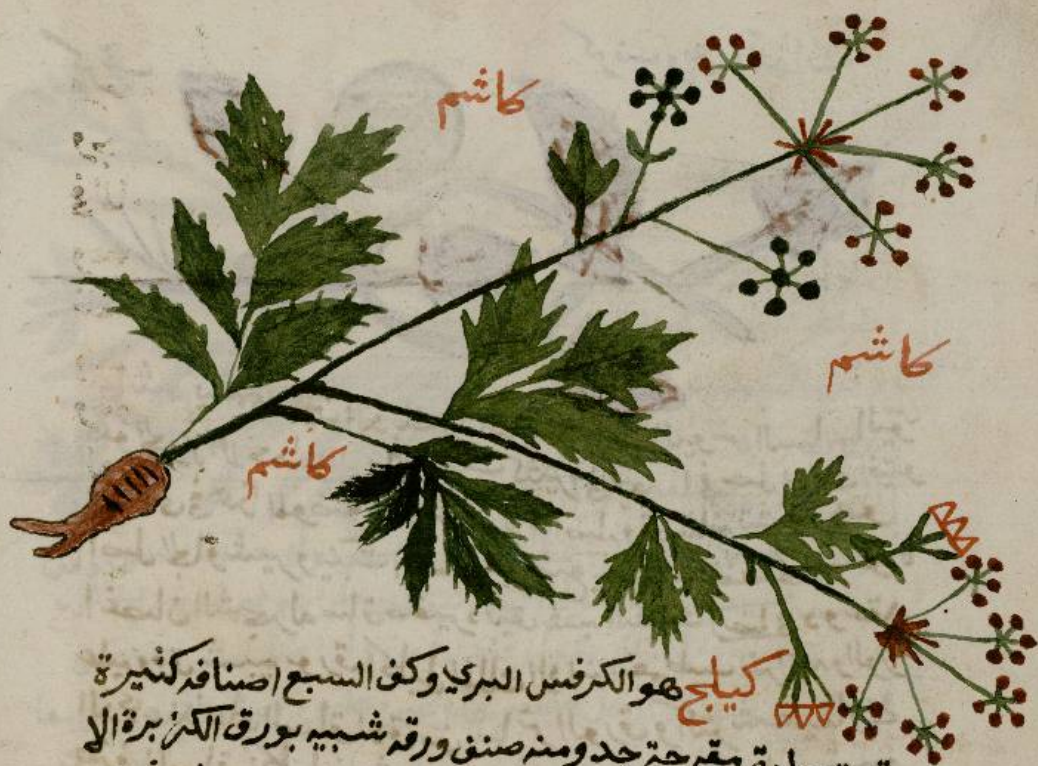 كاشم
كاشم
كاشم
كيلج هو الكرفس البري وكف السبع اصنافه كثيرة
مقرحة حد ومنه صنف ورقه شبيه بورق الكزبرة الا